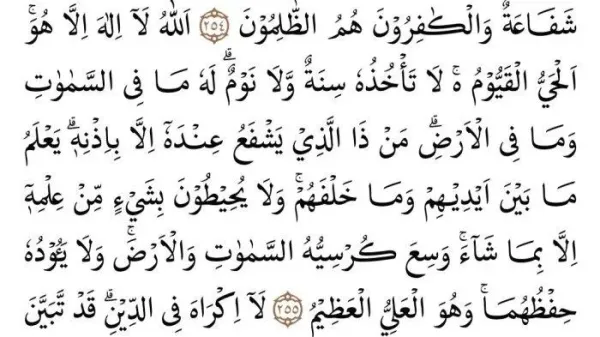 شَفَاعَةٌ وَالْكٰفِرُوْنَ هُمُ الظّٰلِمُوْنَ ﴿٢٥٤﴾ اَللّٰهُ لَآ اِلٰهَ اِلَّا هُوَۚ
اَلْحَيُّ الْقَيُّوْمُ ەۚ لَا تَأْخُذُهٗ سِنَةٌ وَّلَا نَوْمٌۗ لَهٗ مَا فِى السَّمٰوٰتِ
وَمَا فِى الْاَرْضِۗ مَنْ ذَا الَّذِيْ يَشْفَعُ عِنْدَهٗٓ اِلَّا بِاِذْنِهٖۗ يَعْلَمُ
مَا بَيْنَ اَيْدِيْهِمْ وَمَا خَلْفَهُمْۚ وَلَا يُحِيْطُوْنَ بِشَيْءٍ مِّنْ عِلْمِهٖٓ
اِلَّا بِمَا شَاۤءَۚ وَسِعَ كُرْسِيُّهُ السَّمٰوٰتِ وَالْاَرْضَۚ وَلَا يَـُٔوْدُهٗ
حِفْظُهُمَاۚ وَهُوَ الْعَلِيُّ الْعَظِيْمُ ﴿٢٥٥﴾ لَآ اِكْرَاهَ فِى الدِّيْنِۗ قَدْ تَّبَيَّنَ